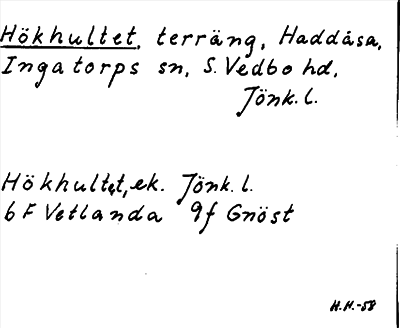 Hökhultet, terräng, Haddåsa,
Ingatorps sn, S. Vedbo hd,
Jönk. l.
Hökhultet, ek. Jönk. l.
6 F Vetlanda 9f Gnöst
H.H.-58